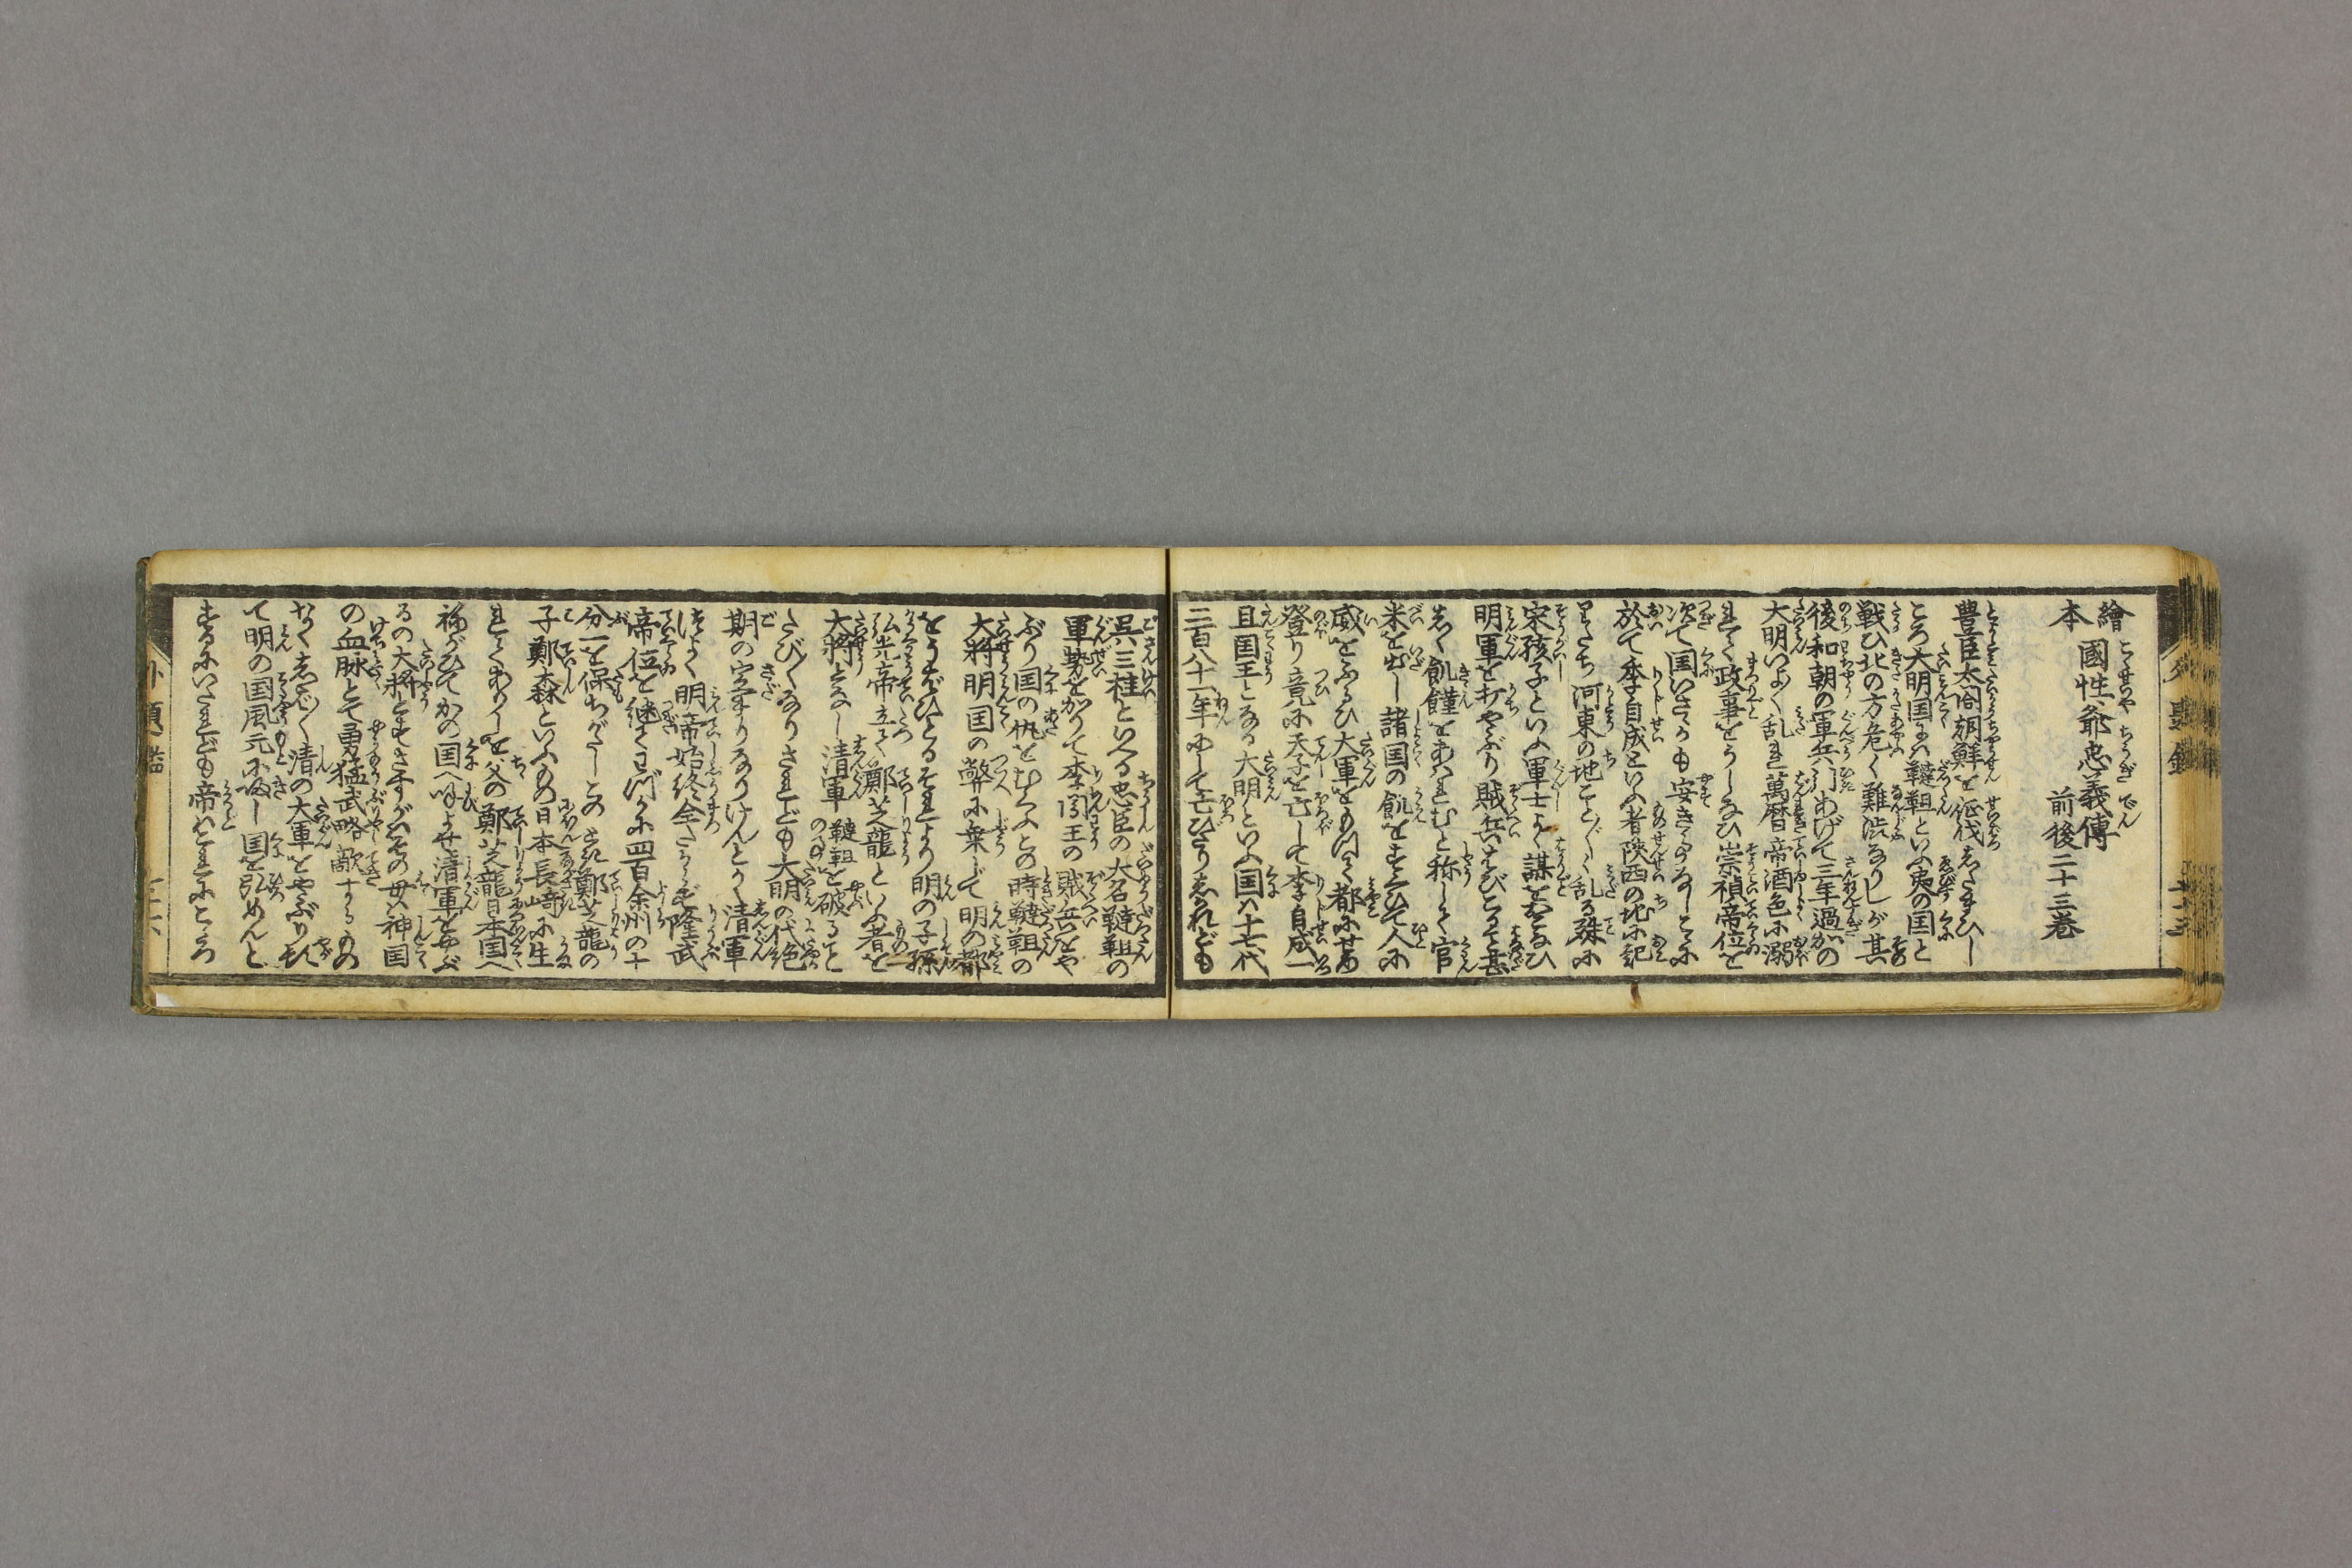 繪本 國性爺忠義傳 前後二十三巻
豊臣太閤朝鮮を征伐したまひし
ころ大明国には韃靼といふ夷の国と
戦ひ北の方危く難渋なりしが其
後和朝の軍兵引あげて三年過ぎかの
大明いよ〳〵乱れ萬暦帝酒色に溺
れて政事をうしなひ崇禎帝位を
次て国いさゝかも安きことなしこゝに
於て李自成といふ者陝西の地に起
りたち河東の地こと〴〵く乱る殊に
宋孩子といふ軍士よく謀をおこなひ
明軍を打やぶり賊兵はびこること甚
しく飢饉をあはれむと称して官
米を出し諸国の飢をすくひて人に
威をふるひ大軍をもつて都にせめ
登り竟に天子を亡して李自成一
旦国王となる大明といふ国は十七代
二百八十一年にして亡びたりしかれども
呉三桂といへる忠臣の大名韃靼の
軍勢をかりて李闖王の賊兵をや
ぶり国の仇をむくふこの時韃靼の
大将明国の弊に乗じて明の都
をうばひとるそれより明の子孫
弘光帝立て鄭芝龍といふ者を
大将となし清軍韃靼を破ること
たび〳〵なりされども大明の代絶
期の定まりなりけんとかく清軍
つよく明帝始終全からず隆武
帝位を継てわづかに四百余州の十
分一を保ちがたしこの時鄭芝龍の
子鄭森といふもの日本長崎に生
れてありしを父の鄭芝龍日本国へ
祢がひてかの国へ呼よせ清軍をせぶ
るの大将とすさすがはその母は神国
の血脉とて勇猛武略敵するもの
なくしば〳〵清の大軍をやぶりし
て明の国風元に復し国を弘めんと
するにいたれども帝はとにところ